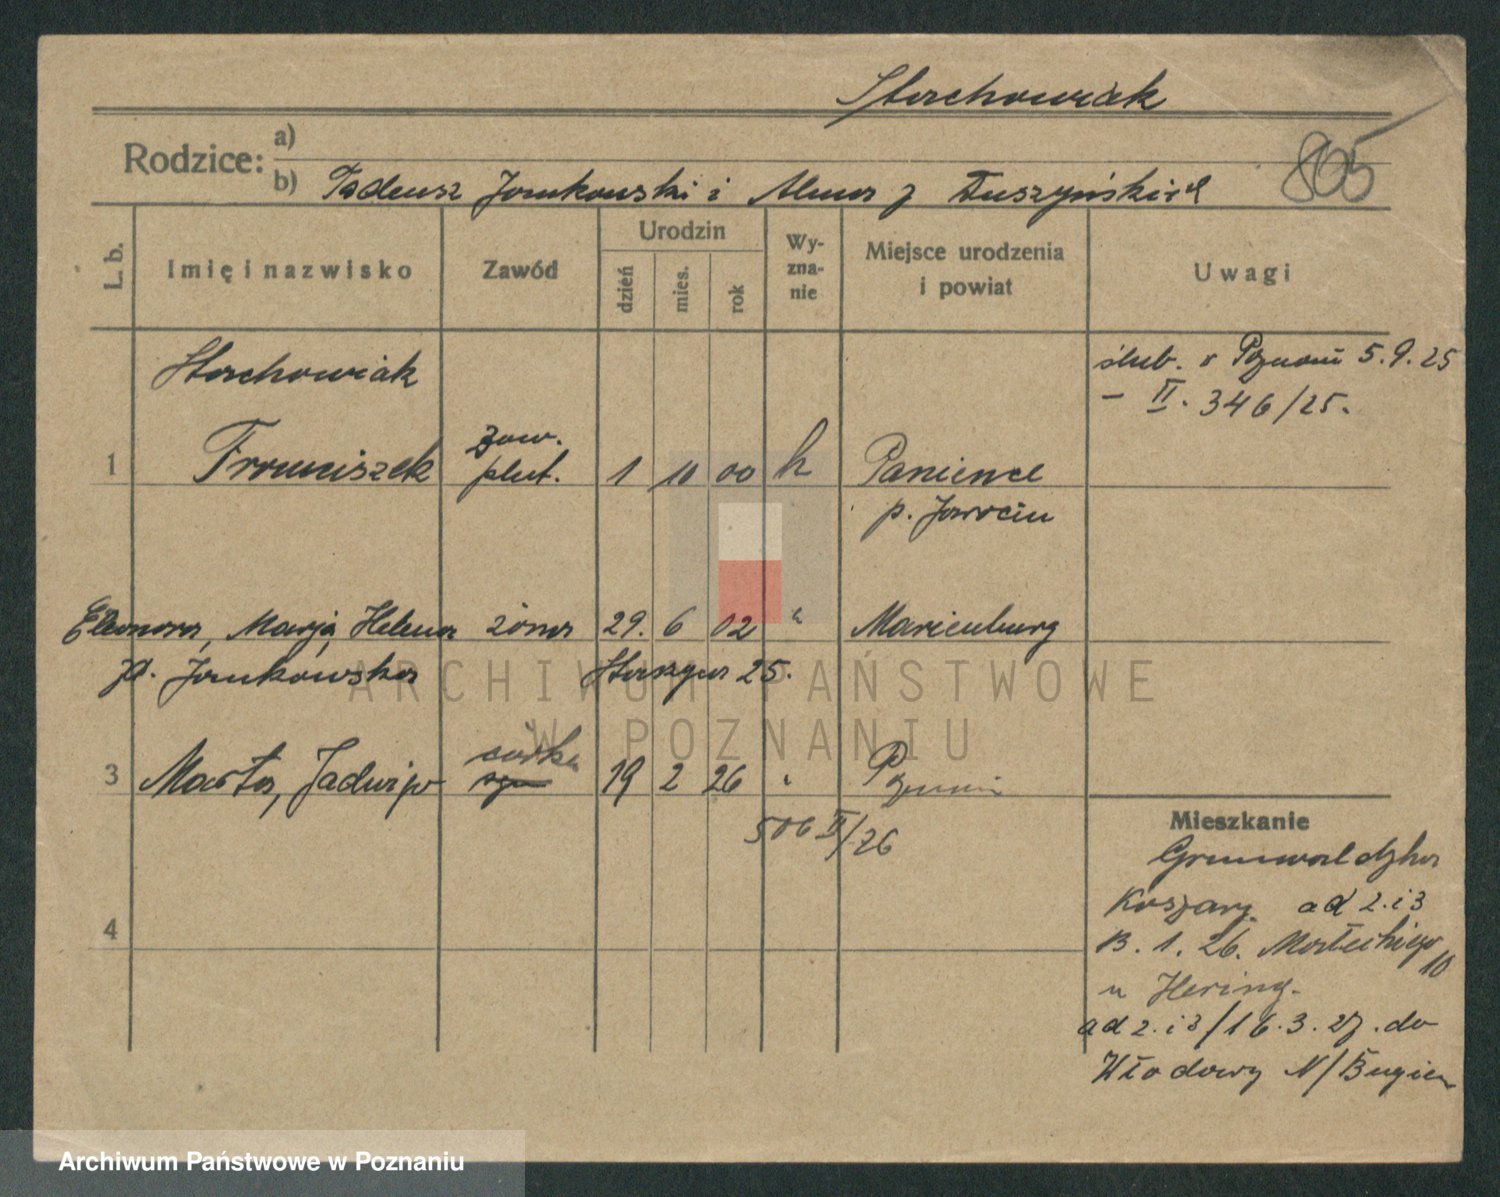 Stachowiak
805
Rodzice: a)
b) Tadeusz Jankowski i Alma z Tuszyńskich
L. b.
Imię i nazwisko
Zawód
Urodzin
dzień
mies.
rok
Wy-
zna-
nie
Miejsce urodzenia
i powiat
Uwagi
Stachowiak
ślub. w Poznaniu 5.9.25
– II. 346/25.
1 Franciszek zaw. plut. 1 10 00 k Panience
p. Jarocin
Eleonora, Marja, Helena żona 29. 6 02 " Marienburg
d. Jankowska 25.
3 Marta, Jadwiga córka syn 19 2 26 " Poznań
506 II/26
4
Mieszkanie
Grunwaldzka
Koszary. ad 2. i 3
13. 1. 26. Małeckiego 10
u Hering.
ad 2. i 3/16.3.27. do
Włodawy N/Bugiem
ARCHIWUM PAŃSTWOWE
W POZNANIU
Archiwum Państwowe w Poznaniu